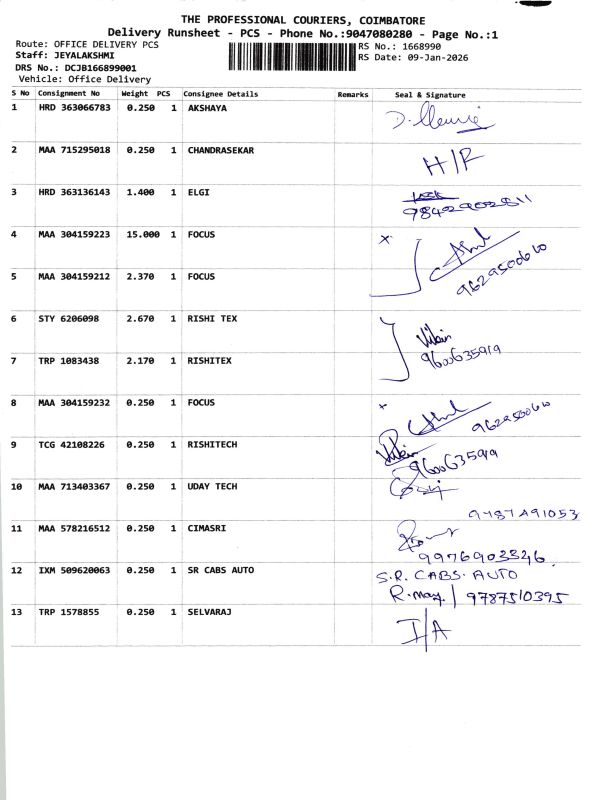 THE PROFESSIONAL COURIERS, COIMBATORE
Delivery Runsheet - PCS - Phone No.:9047080280 - Page No.:1
Route: OFFICE DELIVERY PCS
Staff: JEYALAKSHMI
DRS No.: DCJB166899001
Vehicle: Office Delivery
RS No.: 1668990
RS Date: 09-Jan-2026
S No Consignment No Weight PCS Consignee Details Remarks Seal & Signature
1 HRD 363066783 0.250 1 AKSHAYA
2 MAA 715295018 0.250 1 CHANDRASEKAR H/R
3 HRD 363136143 1.400 1 ELGI
9842902811
4 MAA 304159223 15.000 1 FOCUS
9629500610
5 MAA 304159212 2.370 1 FOCUS
6 STY 6206098 2.670 1 RISHI TEX
9600635919
7 TRP 1083438 2.170 1 RISHITEX
8 MAA 304159232 0.250 1 FOCUS
9 TCG 42108226 0.250 1 RISHITECH
9600635919
10 MAA 713403367 0.250 1 UDAY TECH
9787491053
11 MAA 578216512 0.250 1 CIMASRI
9976903346
12 IXM 509620063 0.250 1 SR CABS AUTO S.R. CABS. AUTO
9787510395
13 TRP 1578855 0.250 1 SELVARAJ I/A